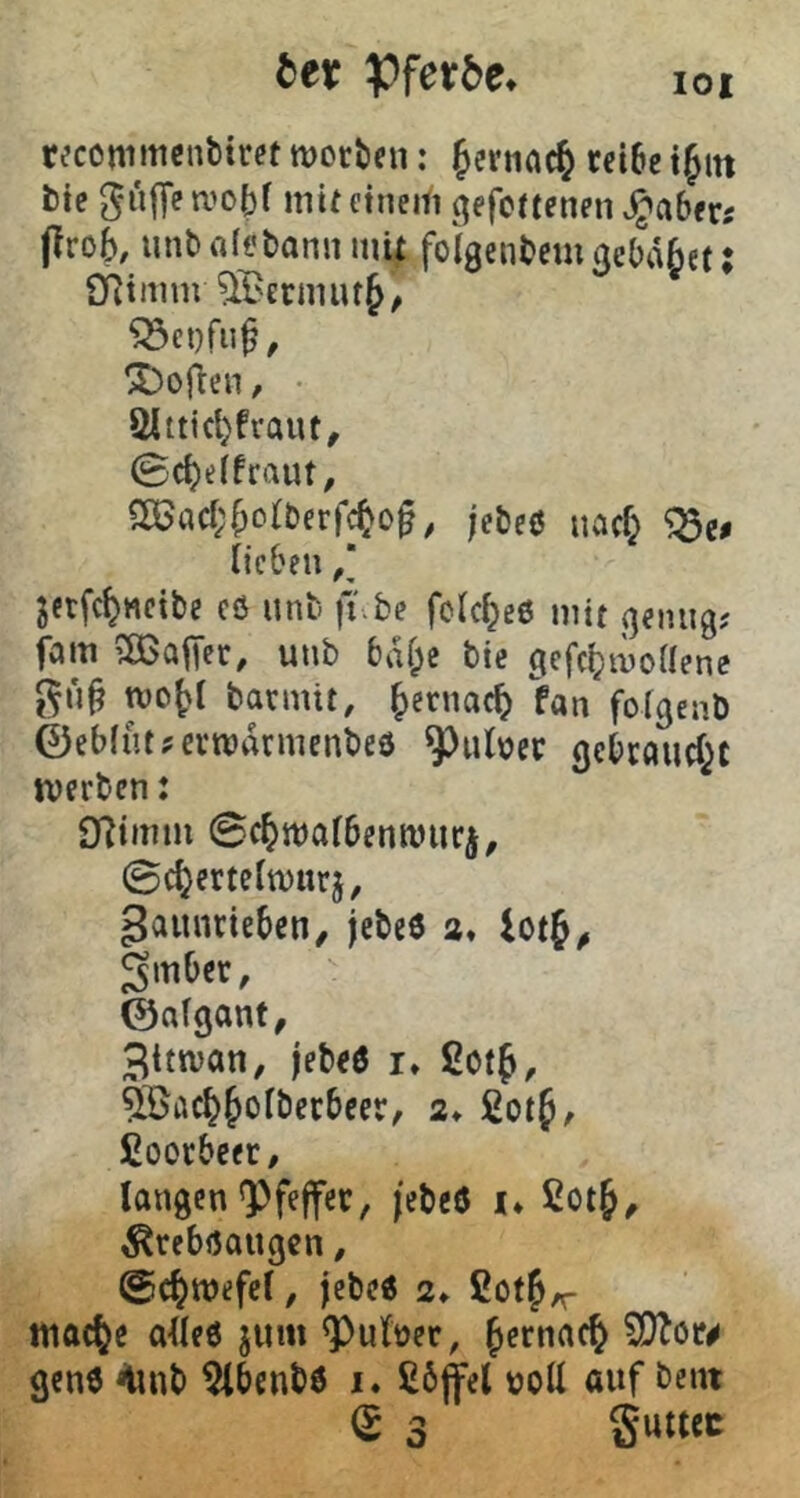 der Pferde. 101
recommendiret worden: hernach reibe ihm
die Füsse wohl mit einem gesottenen Haber-
stroh, und alsdann mit folgendem gebähet:
Nimm Wermuth,
Beyfuß,
Dosten,
Attichkraut,
Schelkraut,
Wachholderschoß, jedes nach Be-
lieben,
zerschneide es und side solches mit genug-
sam Wasser, und bähe die geschwollene
Füß wohl darmit, hernach kan folgend
Geblüt-erwärmendes Pulver gebraucht
werden:
Nimm Schwalbenwurz,
Schertelwurz,
Zaunrieben, jedes 2. loth,
Imber,
Galgant,
Zitwan, jedes 1. Loth,
Wachholderbeer, 2. Loth,
Loorbeer,
langen Pfeffer, jedes 1. Loth,
Krebsaugen,
Schwefel, jedes 2. Loth,
mache alles zum Pulver, hernach Mor-
gens und Abends 1. Löffel voll auf dem
E 3 Futter